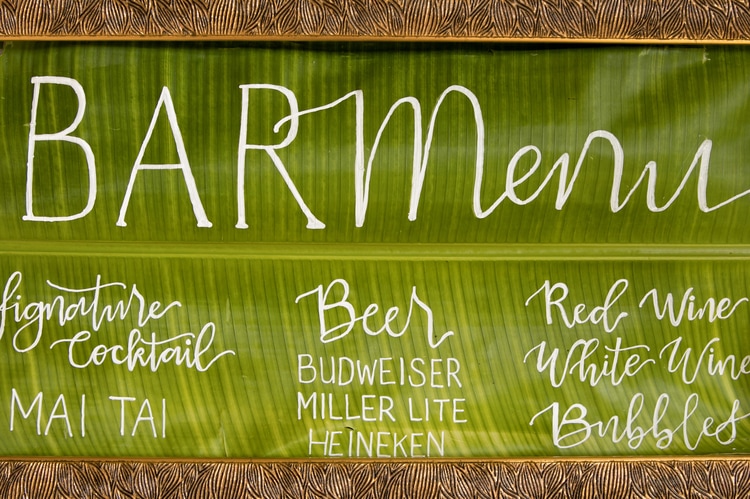 BAR Menu
Signature
Cocktail
MAI TAI
Beer
BUDWEISER
MILLER LITE
HEINEKEN
Red Wine
White Wine
Bubbles